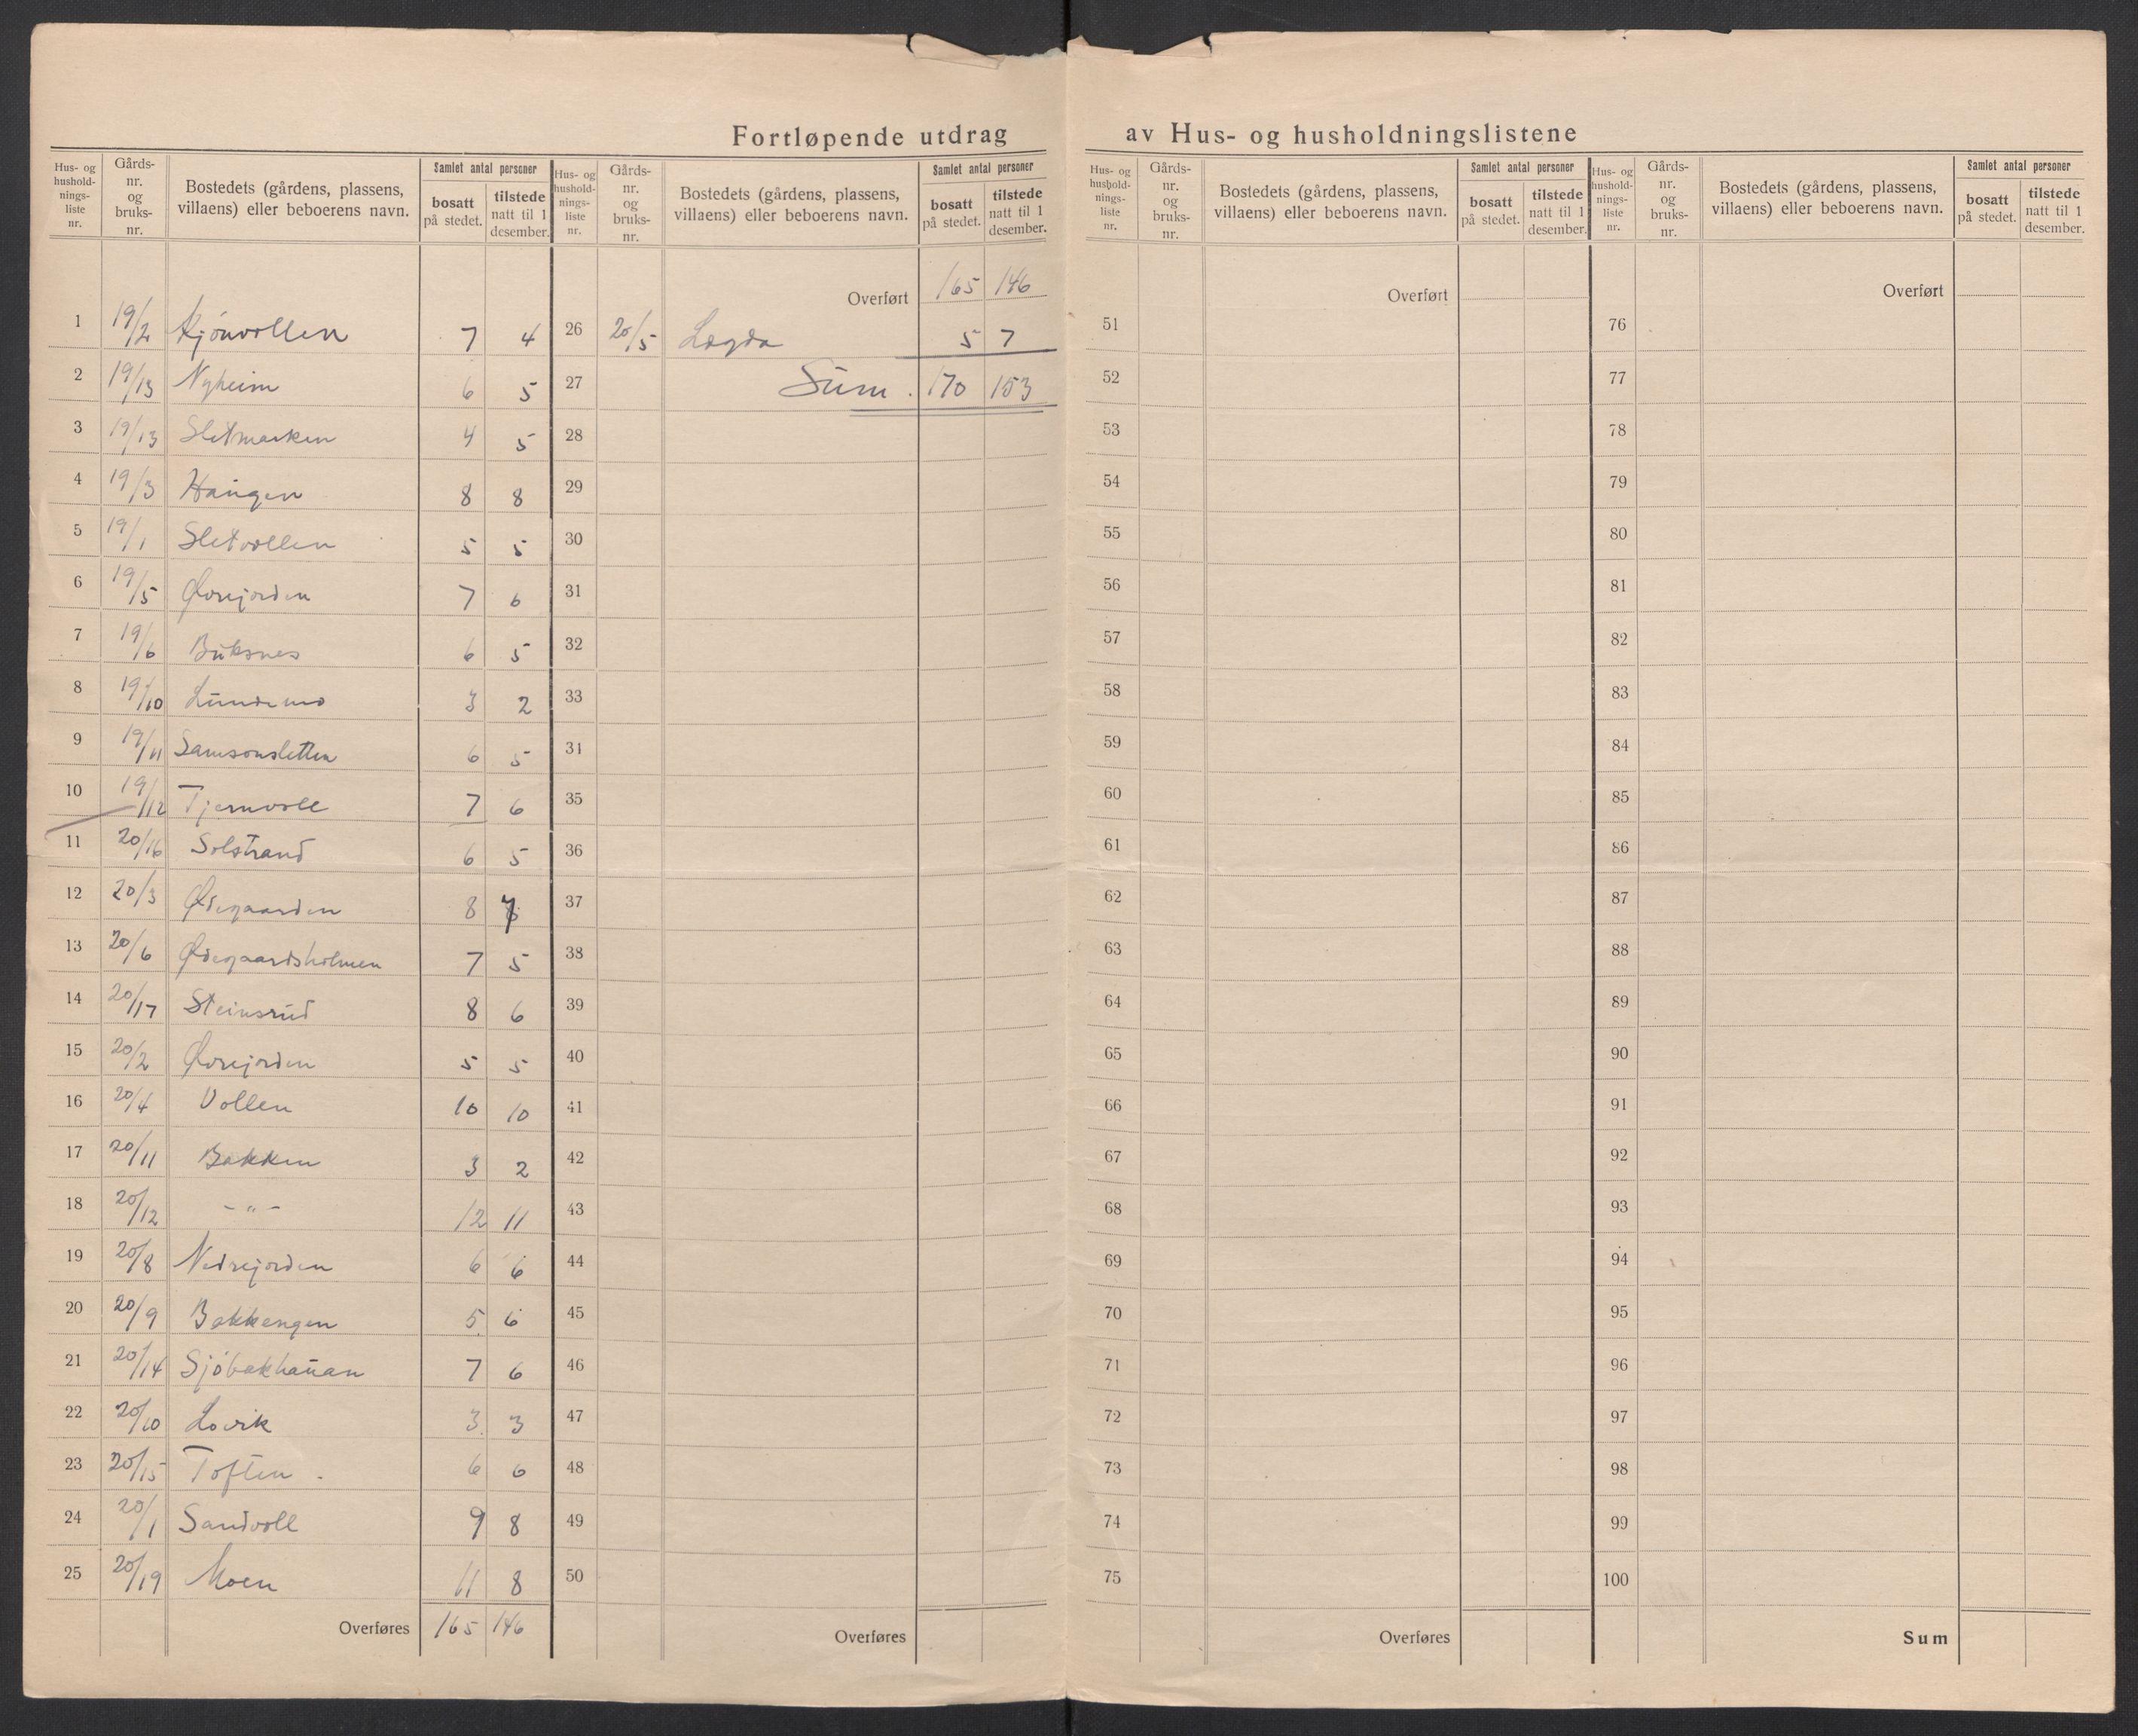 Fortløpende utdrag av Hus- og husholdningslistene
Hus- og hushold- nings- liste nr. | Gårds- nr. og bruks- nr. | Bostedets (gårdens, plassens, villaens) eller beboerens navn. | Samlet antal personer | bosatt på stedet. | tilstede natt til 1 desember.
1 | 19/2 | Kjönvollen | 7 | 4
2 | 19/13 | Nyheim | 6 | 5
3 | 19/13 | Sletmarken | 4 | 5
4 | 19/3 | Haugen | 8 | 8
5 | 19/1 | Sletvollen | 5 | 5
6 | 19/5 | Øvrejorden | 7 | 6
7 | 19/6 | Buksnes | 6 | 5
8 | 19/10 | Lundemo | 3 | 2
9 | 19/11 | Samsonsletten | 6 | 5
10 | 19/12 | Tjernvoll | 7 | 6
11 | 20/16 | Solstrand | 6 | 5
12 | 20/3 | Ødegaarden | 8 | 7
13 | 20/6 | Ødegaardsholmen | 7 | 5
14 | 20/17 | Steinsrud | 8 | 6
15 | 20/2 | Øvrejorden | 5 | 5
16 | 20/4 | Vollen | 10 | 10
17 | 20/11 | Bakken | 3 | 2
18 | 20/12 | -"- | 12 | 11
19 | 20/8 | Nedrejorden | 6 | 6
20 | 20/9 | Bakkengen | 5 | 6
21 | 20/14 | Sjöbakhauan | 7 | 6
22 | 20/10 | Lovik | 3 | 3
23 | 20/15 | Toften | 6 | 6
24 | 20/1 | Sandvoll | 9 | 8
25 | 20/19 | Moen | 11 | 8
Overføres | 165 | 146
Hus- og hushold- nings- liste nr. | Gårds- nr. og bruks- nr. | Bostedets (gårdens, plassens, villaens) eller beboerens navn. | Samlet antal personer | bosatt på stedet. | tilstede natt til 1 desember.
Overført | 165 | 146
26 | 20/5 | Lægda | 5 | 7
27 | Sum. | 170 | 153
28
29
30
31
32
33
31
35
36
37
38
39
40
41
42
43
44
45
46
47
48
49
50
Overføres
Hus- og hushold- nings- liste nr. | Gårds- nr. og bruks- nr. | Bostedets (gårdens, plassens, villaens) eller beboerens navn. | Samlet antal personer | bosatt på stedet. | tilstede natt til 1 desember.
Overført
51
52
53
54
55
56
57
58
59
60
61
62
63
64
65
66
67
68
69
70
71
72
73
74
75
Overføres
Hus- og hushold- nings- liste nr. | Gårds- nr. og bruks- nr. | Bostedets (gårdens, plassens, villaens) eller beboerens navn. | Samlet antal personer | bosatt på stedet. | tilstede natt til 1 desember.
Overført
76
77
78
79
80
81
82
83
84
85
86
87
88
89
90
91
92
93
94
95
96
97
98
99
100
Sum